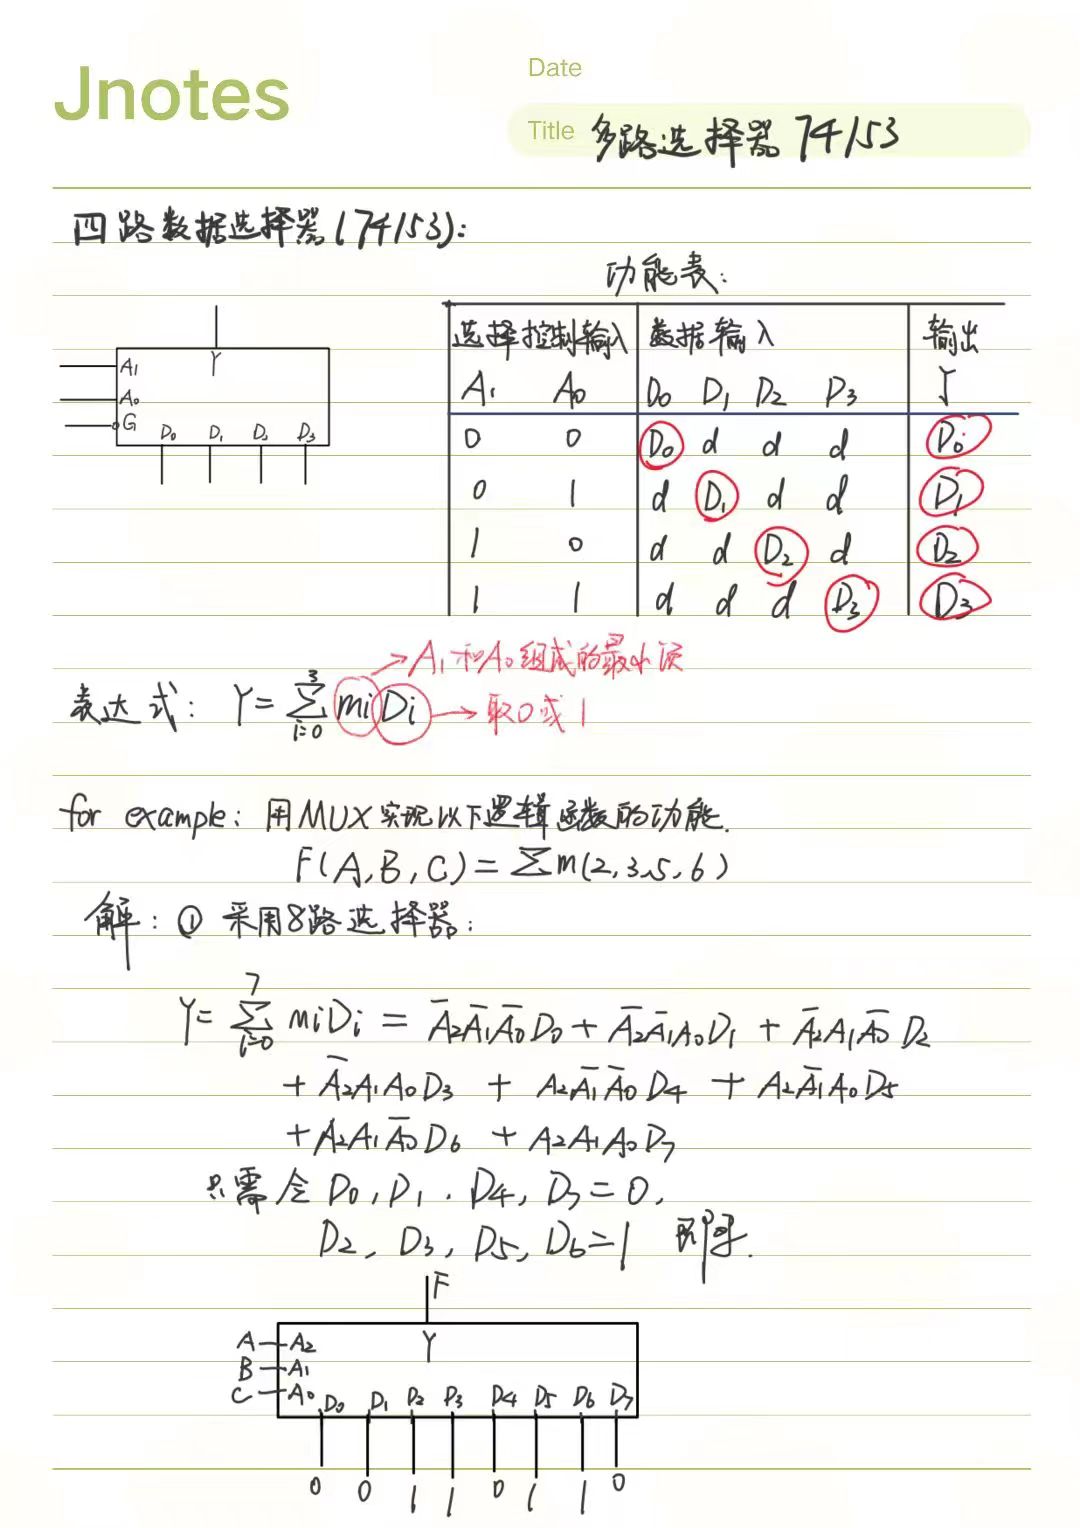 Jnotes
Date
Title 多路选择器 74153
四路数据选择器(74153):
功能表:
Y
A₁
A₀
G
D₀ D₁ D₂ D₃
选择控制输入 数据输入 输出
A₁ A₀ D₀ D₁ D₂ D₃ Y
0 0 D₀ d d d D₀
0 1 d D₁ d d D₁
1 0 d d D₂ d D₂
1 1 d d d D₃ D₃
→A₁和A₀组成的最小项
表达式: Y=∑³ᵢ₌₀ miDi → 取0或1
for example: 用MUX实现以下逻辑函数的功能.
F(A,B,C)=∑m(2,3,5,6)
解: ① 采用8路选择器:
Y=∑⁷ᵢ₌₀ miDi = A̅₂A̅₁A̅₀D₀ + A̅₂A̅₁A₀D₁ + A̅₂A₁A̅₀D₂
+ A̅₂A₁A₀D₃ + A₂A̅₁A̅₀D₄ + A₂A̅₁A₀D₅
+ A₂A₁A̅₀D₆ + A₂A₁A₀D₇
只需令 D₀,D₁,D₄,D₇=0,
D₂, D₃, D₅, D₆=1 即可.
F
A A₂ Y
B A₁
C A₀ D₀ D₁ D₂ D₃ D₄ D₅ D₆ D₇
0 0 1 1 0 1 1 0